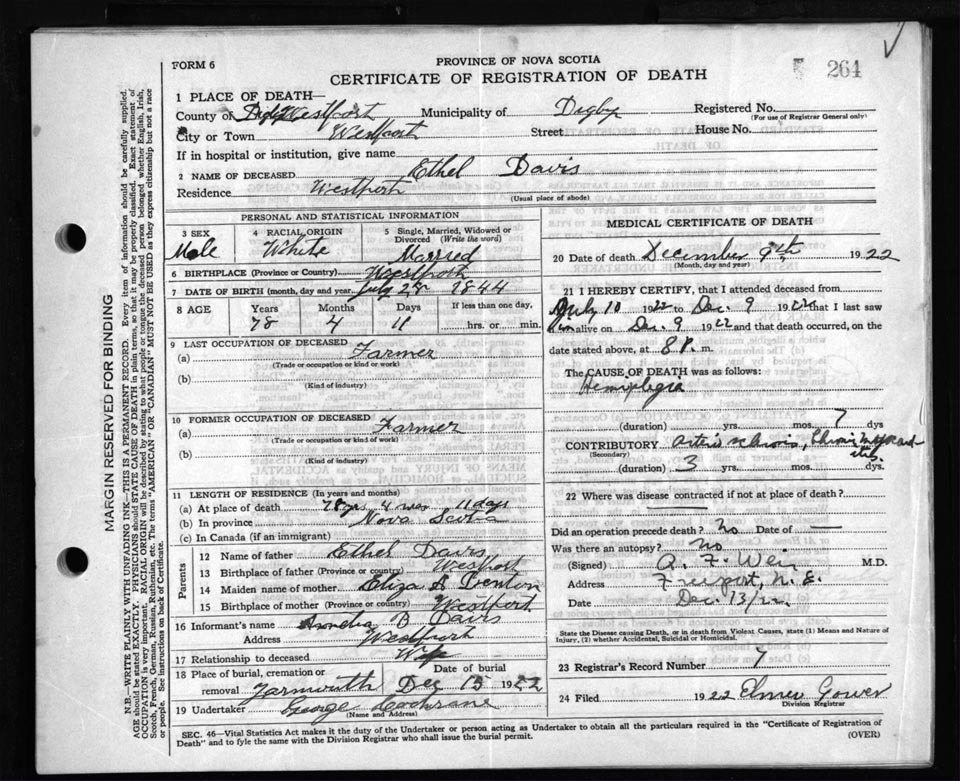 FORM 6
PROVINCE OF NOVA SCOTIA
CERTIFICATE OF REGISTRATION OF DEATH
264
1 PLACE OF DEATH—
County of Westport Municipality of Digby Registered No.
(For use of Registrar General only)
City or Town Westport Street House No.
If in hospital or institution, give name
2 NAME OF DECEASED Ethel Davis
Residence Westport
(Usual place of abode)
PERSONAL AND STATISTICAL INFORMATION
3 SEX Male
4 RACIAL ORIGIN White
5 Single, Married, Widowed or Divorced (Write the word) Married
6 BIRTHPLACE (Province or Country) Westport
7 DATE OF BIRTH (month, day and year) July 28 1844
8 AGE Years 78 Months 4 Days 11 If less than one day, hrs. or min.
9 LAST OCCUPATION OF DECEASED
(a) Farmer
(Trade or occupation or kind or work)
(b)
(Kind of industry)
10 FORMER OCCUPATION OF DECEASED
(a) Farmer
(Trade or occupation or kind of work)
(b)
(Kind of Industry)
11 LENGTH OF RESIDENCE (In years and months)
(a) At place of death 78 yrs 4 mos 11 days
(b) In province Nova Scotia
(c) In Canada (if an immigrant)
Parents
12 Name of father Ethel Davis
13 Birthplace of father (Province or country) Westport
14 Maiden name of mother Eliza A Denton
15 Birthplace of mother (Province or country) Westport
16 Informant's name Amelia B Davis
Address Westport
17 Relationship to deceased Wife
18 Place of burial, cremation or removal Yarmouth Date of burial Dec 15 1922
19 Undertaker George Cochrane
(Name and Address)
MEDICAL CERTIFICATE OF DEATH
20 Date of death December 9th 1922
(Month, day and year)
21 I HEREBY CERTIFY, that I attended deceased from
July 10 1922 to Dec. 9 1922 that I last saw
him alive on Dec. 9 1922 and that death occurred, on the
date stated above, at 8 P. m.
The CAUSE OF DEATH was as follows:
Hemiplegia
(duration) yrs. mos. 7 dys
CONTRIBUTORY Arterio sclerosis, Chronic
(Secondary)
(duration) 3 yrs. mos. dys.
22 Where was disease contracted if not at place of death?
Did an operation precede death? no Date of —
Was there an autopsy? no
(Signed) A. F. Weir M.D.
Address Freeport, N. S.
Date Dec. 13/22
State the Disease causing Death, or in death from Violent Causes, state (1) Means and Nature of
Injury, (2) whether Accidental, Suicidal or Homicidal.
23 Registrar's Record Number 7
24 Filed 1922 Elmer Gower
Division Registrar
SEC. 46—Vital Statistics Act makes it the duty of the Undertaker or person acting as Undertaker to obtain all the particulars required in the "Certificate of Registration of
Death" and to fyle the same with the Division Registrar who shall issue the burial permit. (OVER)
MARGIN RESERVED FOR BINDING
N.B.—WRITE PLAINLY WITH UNFADING INK—THIS IS A PERMANENT RECORD. Every item of information should be carefully supplied.
AGE should be stated EXACTLY. PHYSICIANS should STATE CAUSE OF DEATH in plain terms, so that it may be properly classified. Exact statement of
OCCUPATION is very important. RACIAL ORIGIN will be described by stating to what people or tongue the deceased person belonged whether English, Irish,
Scotch, French, German, Russian, Ruthenian, etc. The terms "AMERICAN" or "CANADIAN" MUST NOT BE USED as they express citizenship but not a race
or people. See instructions on back of Certificate.